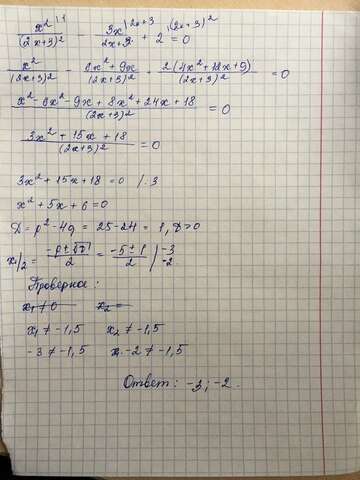 x² ⁽¹ / (2x+3)² - 3x ⁽²ˣ⁺³ / 2x+3 + 2 ⁽(2x+3)² = 0
x² / (2x+3)² - 6x²+9x / (2x+3)² + 2(4x²+12x+9) / (2x+3)² = 0
x² - 6x² - 9x + 8x² + 24x + 18 / (2x+3)² = 0
3x² + 15x + 18 / (2x+3)² = 0
3x² + 15x + 18 = 0 /:3
x² + 5x + 6 = 0
D = p² - 4q = 25 - 24 = 1, D > 0
x1/2 = -p ± √D / 2 = -5 ± 1 / 2 / -3 -2
Проверка:
x₁ ≠ 0 x₂ =
x₁ ≠ -1,5 x₂ ≠ -1,5
-3 ≠ -1,5 -2 ≠ -1,5
Ответ: -3; -2.